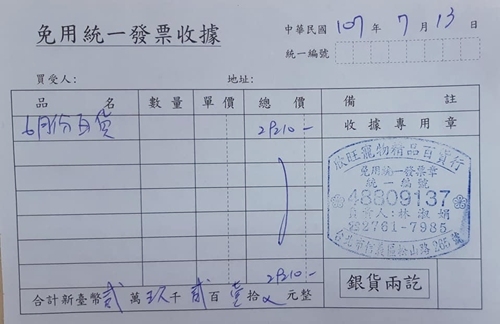 免用統一發票收據
中華民國 107 年 7 月 13 日
統一編號
買受人： 地址：
品名 數量 單價 總價 備註
6月份百貨 29210.-
收據專用章
欣旺寵物精品百貨行
免用統一發票章
統一編號
48809137
負責人：林淑娟
☎2761-7985
台北市信義區松山路265號
29210.-
合計新臺幣 貳 萬 玖 千 貳 百 壹 拾 元整
銀貨兩訖